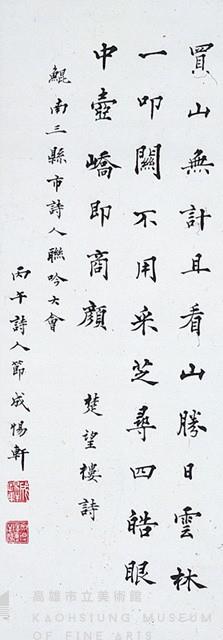 買山無計且看山勝日雲林
一叩關不用采芝尋四皓眼
中壺嶠即商顏 楚望樓詩
鯤南三縣市詩人聯吟大會
丙午詩人節成惕軒
高雄市立美術館
KAOHSIUNG MUSEUM
OF FINE ARTS